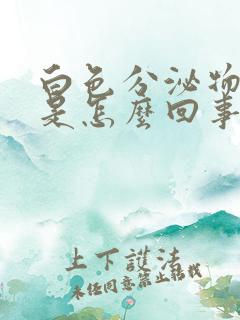 白色分泌物
是怎麼回事
上下護法
未任同意禁止轉载